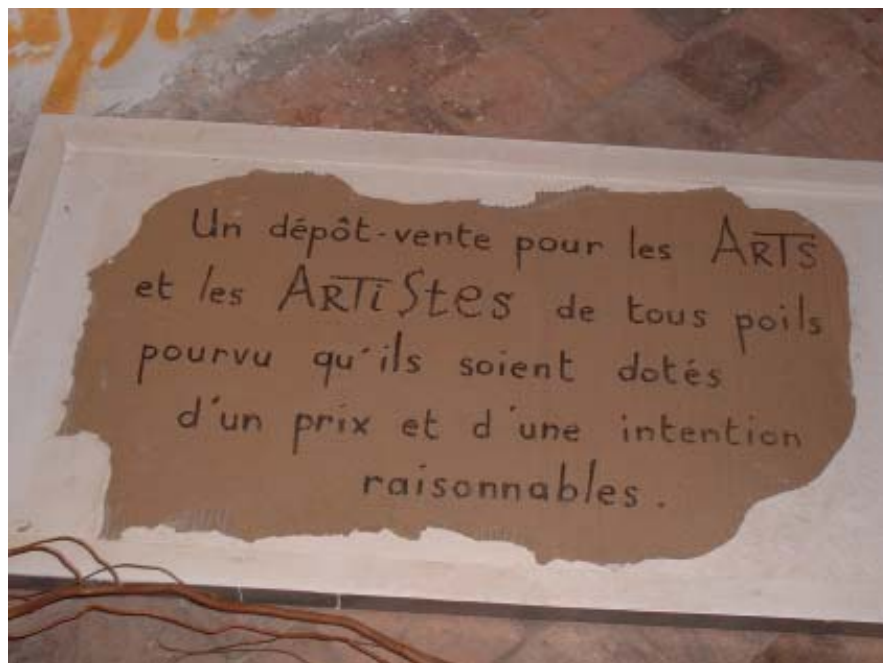 Un dépôt-vente pour les ARTS
et les ARTiStes de tous poils
pourvu qu'ils soient dotés
d'un prix et d'une intention
raisonnables.